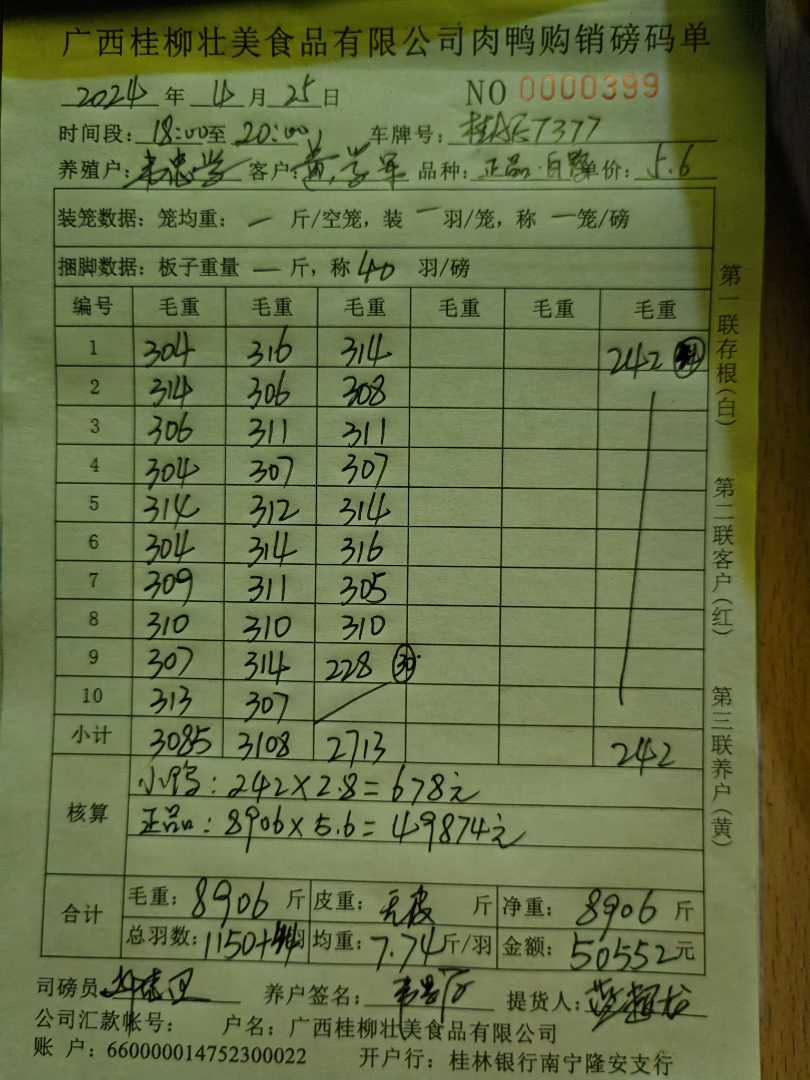 广西桂柳壮美食品有限公司肉鸭购销磅码单
2024 年 4 月 25 日 NO 0000399
时间段: 18:00 至 20:00 车牌号: 7377
养殖户: 客户: 黄 军 品种: 正品·白 单价: 5.6
装笼数据: 笼均重: 一 斤/空笼, 装 一 羽/笼, 称 一 笼/磅
捆脚数据: 板子重量 一 斤, 称 40 羽/磅
编号 毛重 毛重 毛重 毛重 毛重 毛重
1 304 316 314 242
2 314 306 308
3 306 311 311
4 304 307 307
5 314 312 314
6 304 314 316
7 309 311 305
8 310 310 310
9 307 314 228 30
10 313 307
小计 3085 3108 2713 242
核算
小鸭: 242×2.8=678元
正品: 8906×5.6=49874元
合计
毛重: 8906 斤 皮重: 无皮 斤 净重: 8906 斤
总羽数: 1150+44 羽 均重: 7.74 斤/羽 金额: 50552 元
司磅员 养户签名: 提货人:
公司汇款帐号: 户名: 广西桂柳壮美食品有限公司
账 户: 660000014752300022 开户行: 桂林银行南宁隆安支行
第一联存根(白)
第二联客户(红)
第三联养户(黄)